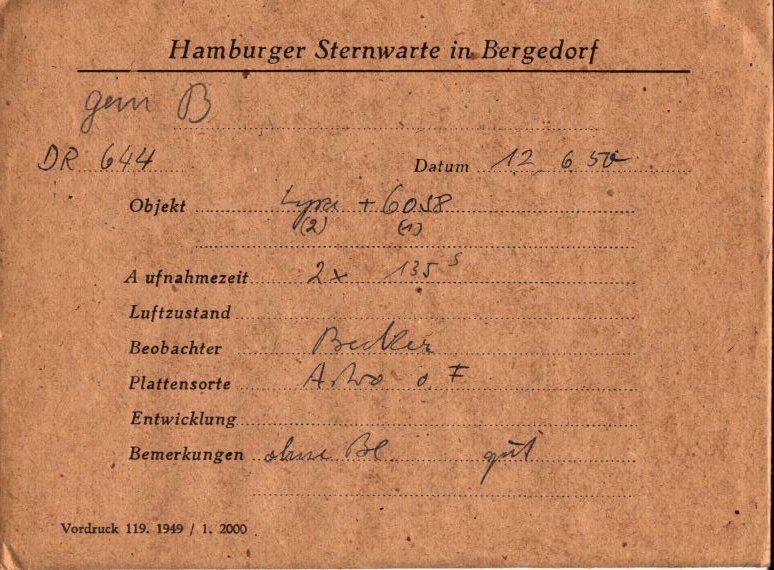 Hamburger Sternwarte in Bergedorf
gem B
DR 644 Datum 12 6 50
Objekt Lyra + 6058
(2) (1)
Aufnahmezeit 2x 135 s
Luftzustand
Beobachter Becker
Plattensorte Astro
Entwicklung
Bemerkungen ohne Bl gut
Vordruck 119. 1949 / 1. 2000